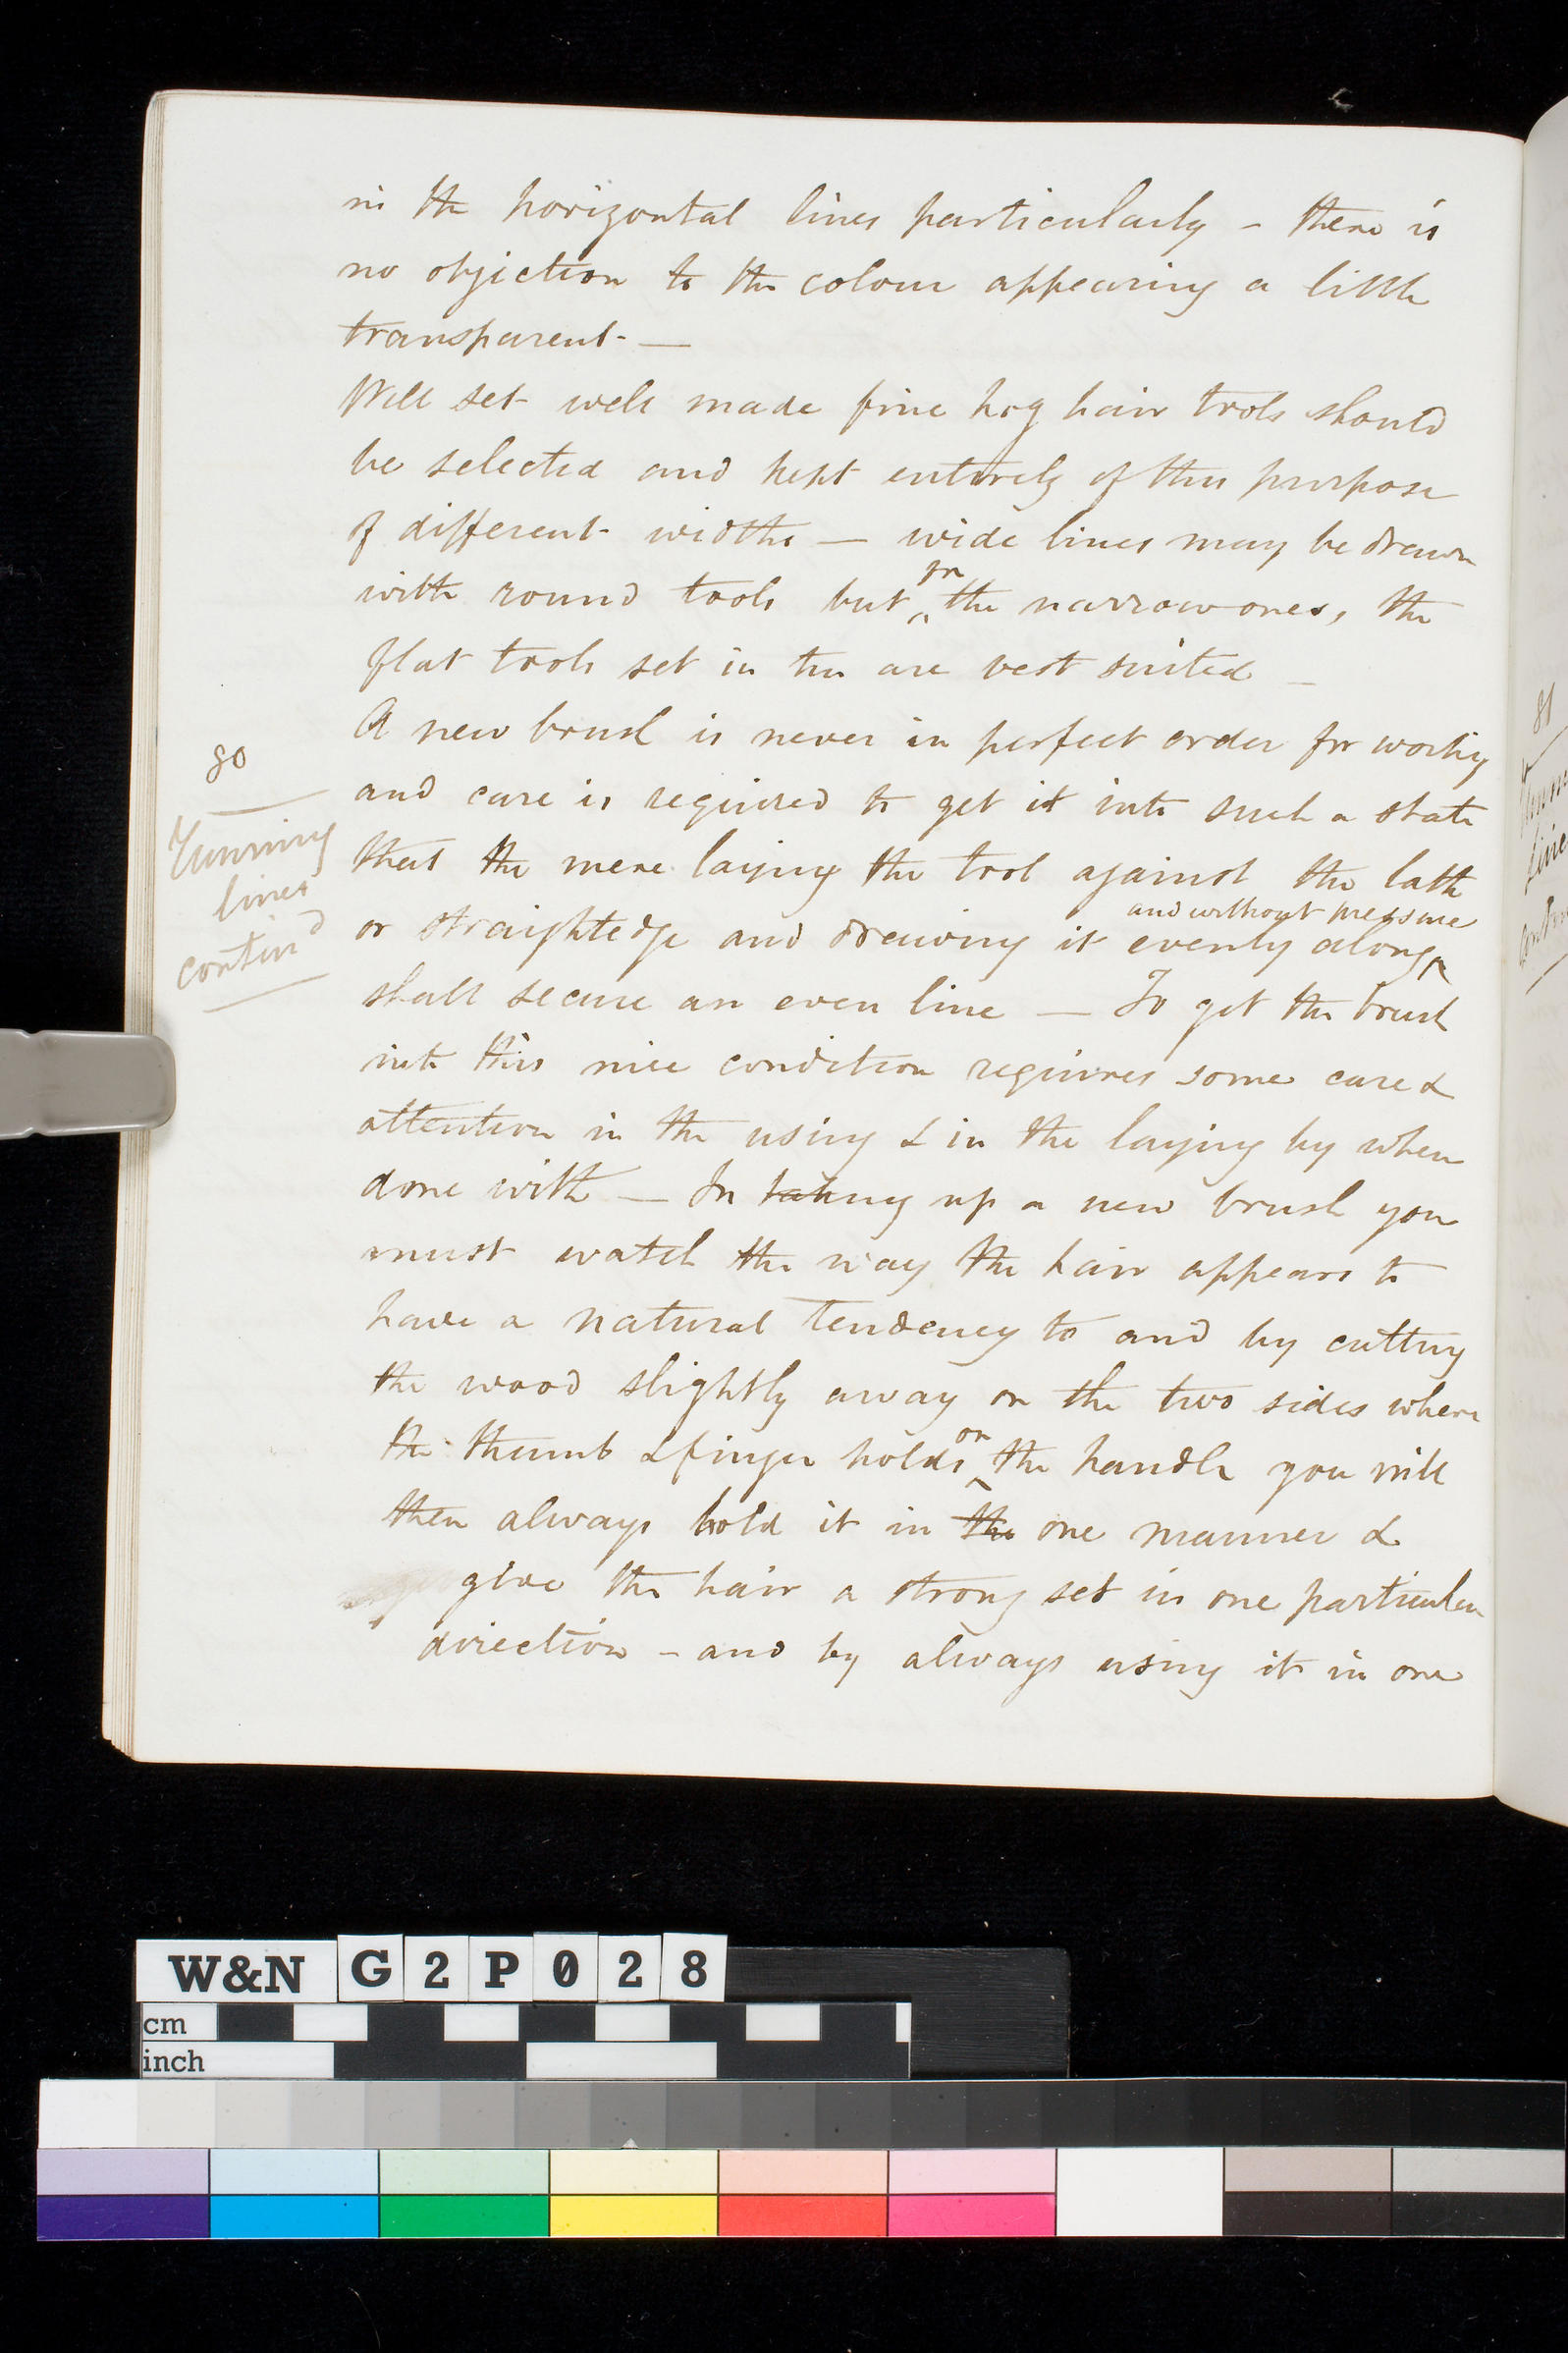 in the horizontal lines particularly – there is
no objection to the colour appearing a little
transparent —
Well set well made fine hog hair tools should
be selected and kept entirely of this purpose
of different widths — wide lines may be drawn
with round tools but ^for the narrow ones, the
flat tools set in tin are best suited –
A new brush is never in perfect order for working
80
and care is required to get it into such a state
Running
that the mere laying the tool against the lath
lines
and without pressure
or straightedge and drawing it evenly along^
contin^d
shall secure an even line — To get the brush
into this nice condition requires some care &
attention in the using & in the laying by when
done with — In taking up a new brush you
must watch the way the hair appears to
have a natural tendency to and by cutting
the wood slightly away on the two sides where
the thumb & finger holds ^on the handle you will
then always hold it in the one manner &
give the hair a strong set in one particular
direction – and by always using it in one
81
W&N G2P028
cm
inch